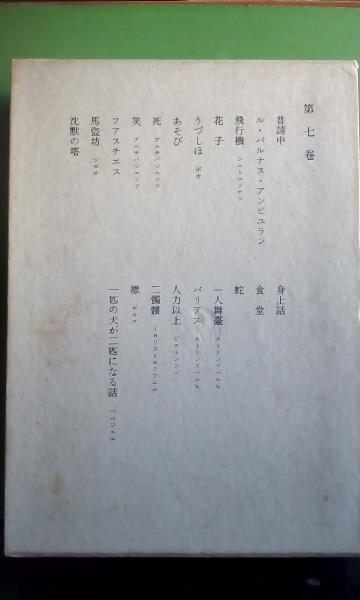 第七巻
普請中
ル・パルナス・アンビユラン
飛行機 シユトユツケン
花子
うづしほ ポオ
あそび
死 アルチバシエツフ
笑 アルチバシエツフ
フアスチエス
馬盗坊 シヨオ
沈默の塔
身上話
食堂
蛇
一人舞臺 ストリンドベルヒ
パリアス ストリンドベルヒ
人力以上 ビヨルンソン
二髑髏 ミヨリスヒヨツフエル
襟 ヂモフ
一匹の犬が二匹になる話 ベルジエエ